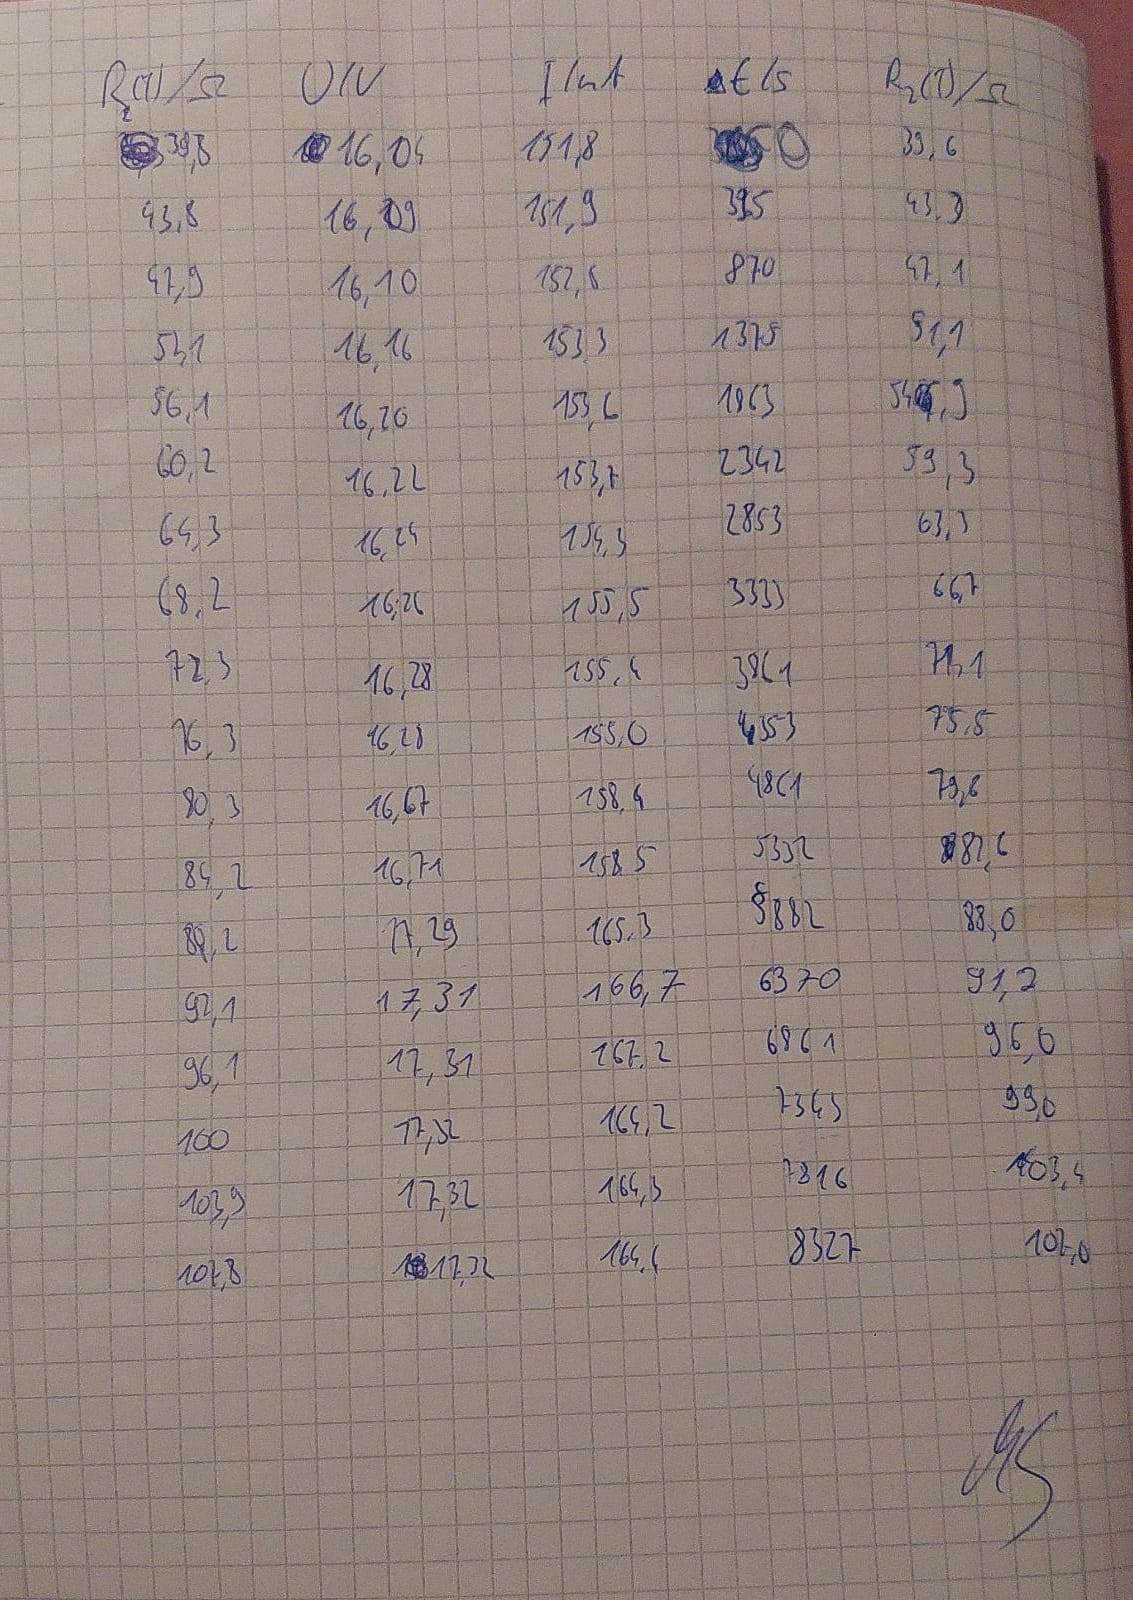 R₂(T)/Ω U/V I/mA Δt/s R₂(T)/Ω
39,8 16,04 151,8 0 39,6
43,8 16,09 151,9 395 43,3
47,9 16,10 152,8 870 47,1
16,16 153,3 1375 51,1
56,1 16,20 153,6 1863 54,9
60,2 16,22 153,7 2342 59,3
64,3 16,24 154,3 2853 63,3
68,2 16,26 155,5 3333 66,7
72,3 16,28 155,4 3861 71,1
76,3 16,28 155,0 4353 75,5
80,3 16,67 158,4 4861 79,6
84,2 16,71 158,5 5332 82,6
88,2 17,29 165,3 5882 88,0
92,1 17,31 166,7 6370 91,2
96,1 17,31 167,2 6861 96,0
100 17,32 164,2 7343 99,0
103,9 17,32 164,3 7816 103,4
107,8 17,32 164,4 8327 107,0